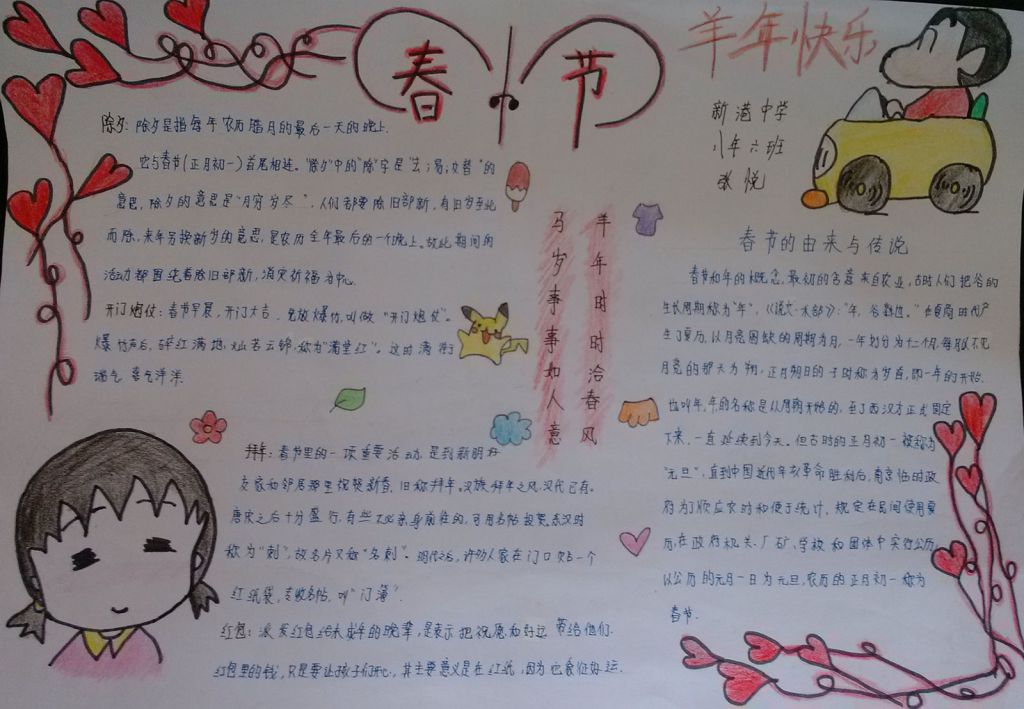 春节
羊年快乐
新港中学
八年六班
张悦
除夕：除夕是指每年农历腊月的最后一天的晚上.
它与春节(正月初一)首尾相连。"除夕"中的"除"字是"去；易；交替"的
意思，除夕的意思是"月穷岁尽"，人们都要除旧部新，有旧岁至此
而除，来年另换新岁的意思，是农历全年最后的一个晚上。故此期间的
活动都围绕着除旧部新，消灾祈福为中心.
开门炮仗：春节早晨，开门大吉，先放爆竹，叫做"开门炮仗"。
爆竹声后，碎红满地，灿若云锦，称为"满堂红"。这时满街
瑞气 喜气洋洋.
羊年时时沿春风
马岁事事如人意
拜年：春节里的一项重要活动，是到新朋好
友家和邻居那里祝贺新春，旧称拜年。汉族拜年之风，汉代已有。
唐宋之后十分盛行，有些不必亲身前往的，可用名帖投贺。东汉时
称为"刺"，故名片又称"名刺"。明代之后，许多人家在门口贴一个
红纸袋，专收名帖，叫"门簿".
红包：派发红包给未成年的晚辈，是表示把祝愿和好运带给他们.
红包里的钱，只是要让孩子们开心，其主要意义是在红纸，因为它象征好运.
春节的由来与传说
春节和年的概念，最初的含意来自农业，古时人们把谷的
生长周期称为"年"，《说文·禾部》："年，谷熟也."在夏商时代产
生了夏历，以月亮圆缺的周期为月，一年划分为十二个月，每月以不见
月亮的那天为朔，正月朔日的子时称为岁首，即一年的开始.
也叫年，年的名称是从周朝开始的，至了西汉才正式固定
下来，一直延续到今天。但古时的正月初一被称为
"元旦"，直到中国近代辛亥革命胜利后，南京临时政
府为了顺应农时和便于统计，规定在民间使用夏
历，在政府机关、厂矿、学校和团体中实行公历，
以公历的元月一日为元旦，农历的正月初一称为
春节.